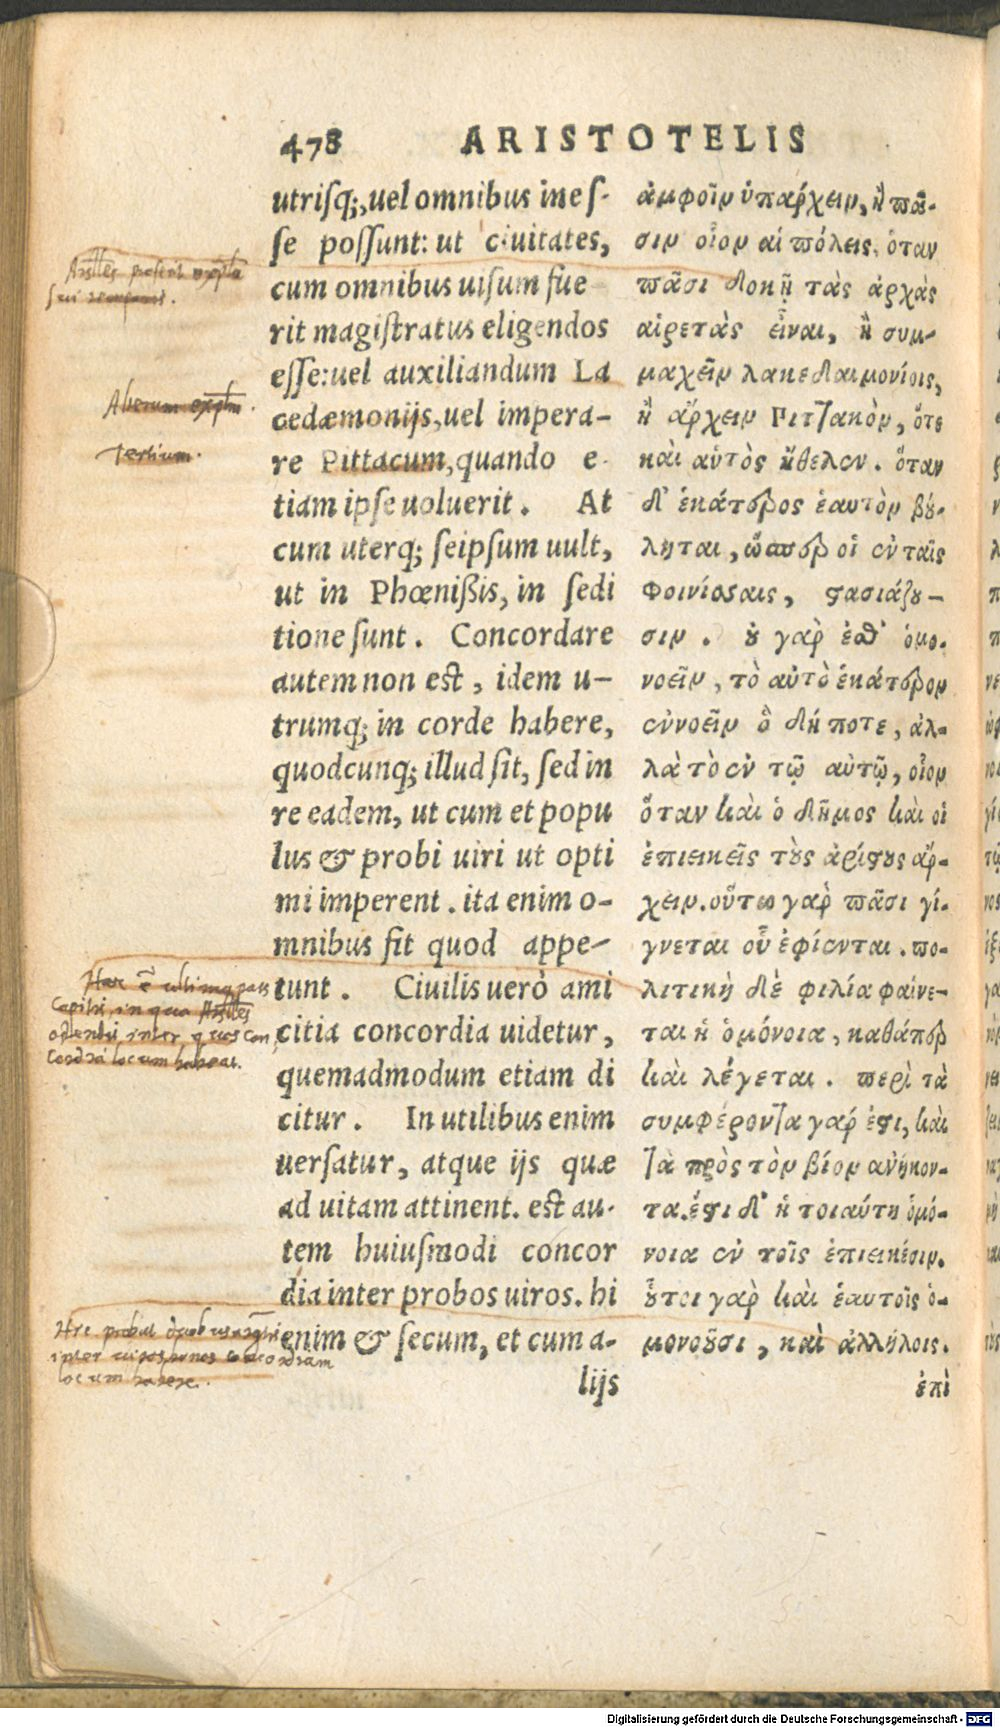 478 ARISTOTELIS
utriſq;, uel omnibus ineſ-
ſe poſſunt: ut ciuitates,
cum omnibus uiſum fue
rit magiſtratus eligendos
eſſe: uel auxiliandum La
cedæmonijs, uel impera-
re Pittacum, quando e-
tiam ipſe uoluerit. At
cum uterq; ſeipſum uult,
ut in Phœnißis, in ſedi
tione ſunt. Concordare
autem non est, idem u-
trumq; in corde habere,
quodcunq; illud ſit, ſed in
re eadem, ut cum et popu
lus & probi uiri ut opti
mi imperent. ita enim o-
mnibus fit quod appe-
tunt. Ciuilis uerò ami
citia concordia uidetur,
quemadmodum etiam di
citur. In utilibus enim
uerſatur, atque ijs quæ
ad uitam attinent. est au-
tem huiuſmodi concor
dia inter probos uiros. hi
enim & ſecum, et cum a-
lijs
ἀμφοῖν ὑπάρχειν, ἢ πᾶ-
σιν οἷον αἱ πόλεις, ὅταν
πᾶσι δοκῇ τὰς ἀρχὰς
αἱρετὰς εἶναι, ἢ συμ-
μαχεῖν λακεδαιμονίοις,
ἢ ἄρχειν Πιττακὸν, ὅτε
καὶ αὐτὸς ἤθελεν. ὅταν
δ' ἑκάτερος ἑαυτὸν βού-
ληται, ὥσπερ οἱ ἐν ταῖς
Φοινίσσαις, στασιάζου-
σιν. οὐ γὰρ ἐσθ' ὁμο-
νοεῖν, τὸ αὐτὸ ἑκάτερον
ἐννοεῖν ὃ δή ποτε, ἀλ-
λὰ τὸ ἐν τῷ αὐτῷ, οἷον
ὅταν καὶ ὁ δῆμος καὶ οἱ
ἐπιεικεῖς τοὺς ἀρίστους ἄρ-
χειν. οὕτω γὰρ πᾶσι γί-
γνεται οὗ ἐφίενται. πο-
λιτικὴ δὲ φιλία φαίνε-
ται ἡ ὁμόνοια, καθάπερ
καὶ λέγεται. περὶ τὰ
συμφέροντα γάρ ἐστι, καὶ
τὰ πρὸς τὸν βίον ἀνήκον-
τα. ἔστι δ' ἡ τοιαύτη ὁμό-
νοια ἐν τοῖς ἐπιεικέσιν.
οὗτοι γὰρ καὶ ἑαυτοῖς ὁ-
μονοοῦσι, καὶ ἀλλήλοις.
ἐπὶ
Alterum
Tertium.
Digitalisierung gefördert durch die Deutsche Forschungsgemeinschaft - DFG